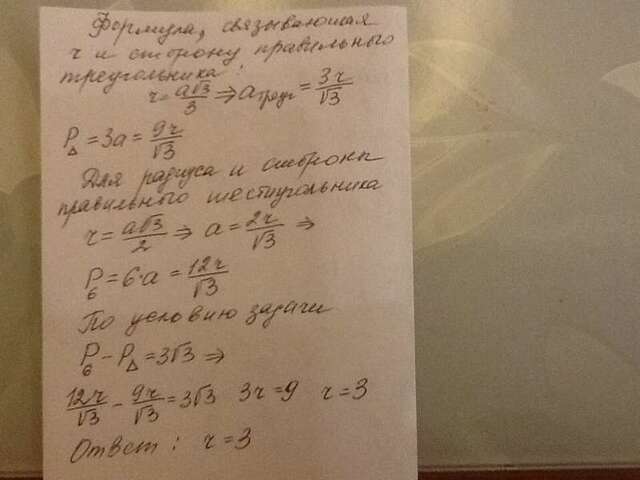 Формула, связывающая
r и сторону правильного
треугольника:
r = a√3/3 ⇒ a треуг = 3r/√3
P△ = 3a = 9r/√3
Для радиуса и стороны
правильного шестиугольника
r = a√3/2 ⇒ a = 2r/√3 ⇒
P₆ = 6·a = 12r/√3
По условию задачи
P₆ − P△ = 3√3 ⇒
12r/√3 − 9r/√3 = 3√3 3r = 9 r = 3
Ответ: r = 3